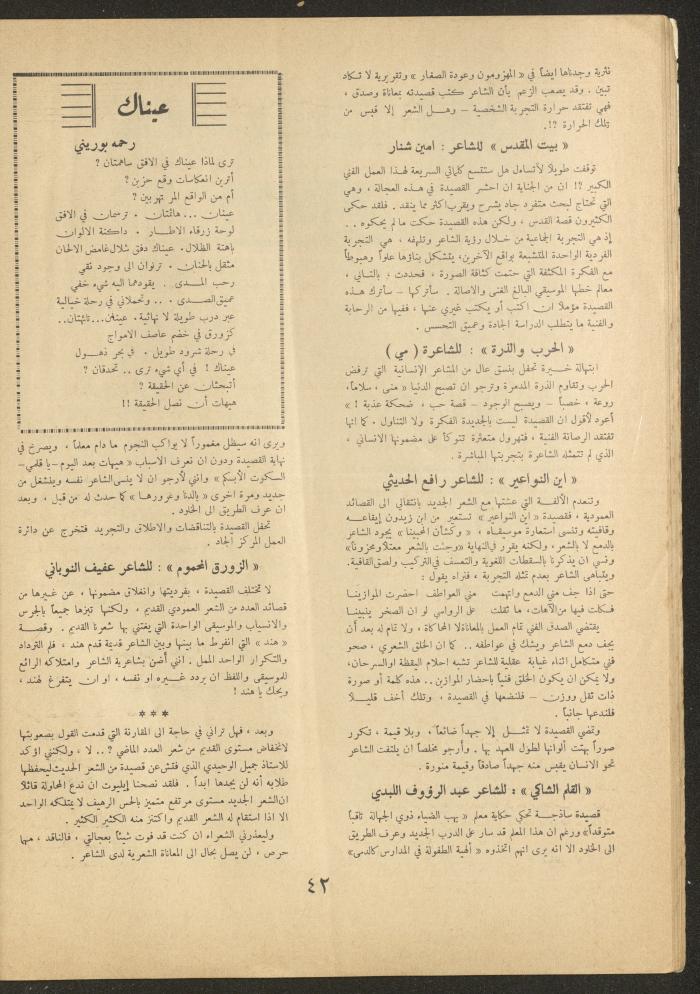 نثرية وجدناها ايضاً في « المهزومون وعودة الصغار » وتقريرية لا تكاد
تبين . وقد يصعب الزعم بأن الشاعر كتب قصيدته بمعاناة وصدق ،
فهي تفتقد حرارة التجربة الشخصية – وهل الشعر إلا قبس من
تلك الحرارة ؟!.
« بيت المقدس » للشاعر : امين شنار
توقفت طويلاً لأتساءل هل ستتسع كلماتي السريعة لهذا العمل الفني
الكبير ؟! ان من الجناية ان احشر القصيدة في هذه العجالة ، وهي
التي تحتاج لبحث متفرد جاد يشرح ويقرب اكثر مما ينقد . فلقد حكى
الكثيرون قصة القدس ، ولكن هذه القصيدة حكت ما لم يحكوه . .
إذ هي التجربة الجماعية من خلال رؤية الشاعر وتلهفه ، هي التجربة
الفردية الواحدة المتشبعة بواقع الآخرين، يتشكل بناؤها علواً وهبوطاً
مع الفكرة المكثفة التي حتمت كثافة الصورة ، فحددت ، بالتالي ،
معالم خطها الموسيقي البالغ الغنى والاصالة . سأتركها – سأترك هذه
القصيدة مؤملاً ان اكتب أو يكتب غيري عنها ، ففيها من الرحابة
والفنية ما يتطلب الدراسة الجادة وعميق التحسس .
« الحرب والذرة » : للشاعرة ( مي )
ابتهالة خيرة تحفل بنسق عال من المشاعر الإنسانية التي ترفض
الحرب وتقاوم الذرة المدمرة وترجو ان تصبح الدنيا « منى ، سلاماً،
روعة ، خصباً – ويصبح الوجود – قصة حب ، ضحكة عذبة ! »
أعود لأقول ان القصيدة ليست بالجديدة الفكرة ولا التناول . كما انها
تفتقد الرصانة الفنية ، فتهرول متعثرة تتوكأ على مضمونها الانساني ،
الذي لم تتمثله الشاعرة بتجربتها المباشرة .
« اين النواعير » : للشاعر رافع الحديثي
وتنعدم الألفة التي عشتها مع الشعر الجديد بانتقالي الى القصائد
العمودية ، فقصيدة « اين النواعير » تستعير من ابن زيدون إيقاعه
وقافيته وتنسى استعارة موسيقاه ، « وكشأن المحبينا » يجود الشاعر
بالدمع لا بالشعر، ولكنه يقرر في النهاية «وجئت بالشعر معتلاً ومحزوناً»
ونسي ان يذكرنا بالسقطات اللغوية والتعسف في التركيب ولصق القافية.
ويتباهى الشاعر بعدم تمثله التجربة ، فنراه يقول :
حتى اذا جف مني الدمع واتهمت مني العواطف احضرت الموازينا
فكلت فيها من الآهات، ما ثقلت على الرواسي لو ان الصخر ينبينا
يقتضي الصدق الفني تمام العمل بالمعاناة لا المحاكاة ، ولا تمام له بعد أن
يجف دمع الشاعر ويشك في عواطفه . . كما ان الخلق الشعري ، صحو
فني متكامل اثناء غيابة عقلية للشاعر تشبه احلام اليقظة او السرحان،
ولا يمكن ان يكون الخلق فنياً باحضار الموازين . . هذه كلمة أو صورة
ذات ثقل ووزن – فلنضعها في القصيدة ، وتلك أخف قليلاً
فلندعها جانباً .
وتمضي القصيدة لا تمثل إلا جهداً ضائعاً ، وبلا قيمة ، تكرر
صوراً بهتت ألوانها لطول العهد بها . وأرجو مخلصاً ان يلتفت الشاعر
نحو الانسان يقبس منه جهداً صادقاً وقيمة منورة .
« القلم الشاكي » : للشاعر عبد الرؤوف اللبدي
قصيدة ساذجة تحكي حكاية معلم « يهب الضياء ذوي الجهالة ثاقباً
متوقداً» ورغم ان هذا المعلم قد سار على الدرب الجديد وعرف الطريق
الى الخلود الا انه يرى انهم اتخذوه « ألهية الطفولة في المدارس كالدمى»
عيناك
رحمه بوريني
ترى لماذا عيناك في الافق ساهمتان ؟
أترين انعكاسات وقع حزين ؟
أم من الواقع المر تهربين ؟
عينان ... هائمتان . ترسمان في الافق
لوحة زرقاء الاطار . داكنة الالوان
باهتة الظلال . عيناك دفق شلال غامض الالحان
مثقل بالحنان . ترنوان الى وجود نقي
رحب المدى . يقودهما اليه شيء خفي
عميق الصدى . .. وتحملاني في رحلة خيالية
عبر درب طويلة لا نهائية . عينان... تائهتان..
كزورق في خضم عاصف الامواج
في رحلة شرود طويل . في بحر ذهول
عيناك ! في أي شيء ترى .. تحدقان ؟
أتبحثان عن الحقيقة ؟
هيهات أن نصل الحقيقة !!
ويرى انه سيظل مغموراً لا يواكب النجوم ما دام معلماً ، ويصرخ في
نهاية القصيدة ودون ان نعرف الاسباب « هيهات بعد اليوم – يا قلمي–
السكوت الأبكم » وانني لأرجو ان لا ينسى الشاعر نفسه وينشغل من
جديد ومرة اخرى « بالدنا وغرورها » كما حدث له من قبل ، وبعد
ان عرف الطريق الى الخلود .
تحفل القصيدة بالتناقضات والاطلاق والتجريد فتخرج عن دائرة
العمل المركز الجاد .
« الزورق المحموم » : للشاعر عفيف النوباني
لا تختلف القصيدة ، بفرديتها وانغلاق مضمونها ، عن غيرها من
قصائد العدد من الشعر العمودي القديم ، ولكنها تبزها جميعاً بالجرس
والانسياب والموسيقى الواحدة التي يغتني بها شعرنا القديم . وقصة
« هند » التي انفرط ما بينها وبين الشاعر قديمة قدم هند ، فلم الترداد
والتكرار الواحد الممل . انني أضن بشاعرية الشاعر وامتلاكه الرائع
للموسيقى واللفظ ان يردد غيره او نفسه ، او ان يتفرغ لهند ،
ويحك يا هند !
* * *
وبعد ، فهل تراني في حاجة الى المقارنة التي قدمت القول بصعوبتها
لانخفاض مستوى القديم من شعر العدد الماضي ؟ .. لا ، ولكنني اؤكد
للاستاذ جميل الوحيدي الذي فتش عن قصيدة من الشعر الحديث ليحفظها
طلابه أنه لن يجدها ابداً . فلقد نصحنا إيليوت ان ندع المحاولة قائلاً
ان الشعر الجديد مستوى مرتفع متميز بالحس الرهيف لا يمتلكه الواحد
الا اذا استقام له الشعر القديم واكتنز منه الكثير الكثير .
وليعذرني الشعراء ان كنت قد فوت شيئاً بعجالتي ، فالناقد ، مهما
حرص ، لن يصل بحال الى المعاناة الشعرية لدى الشاعر .
٤٢